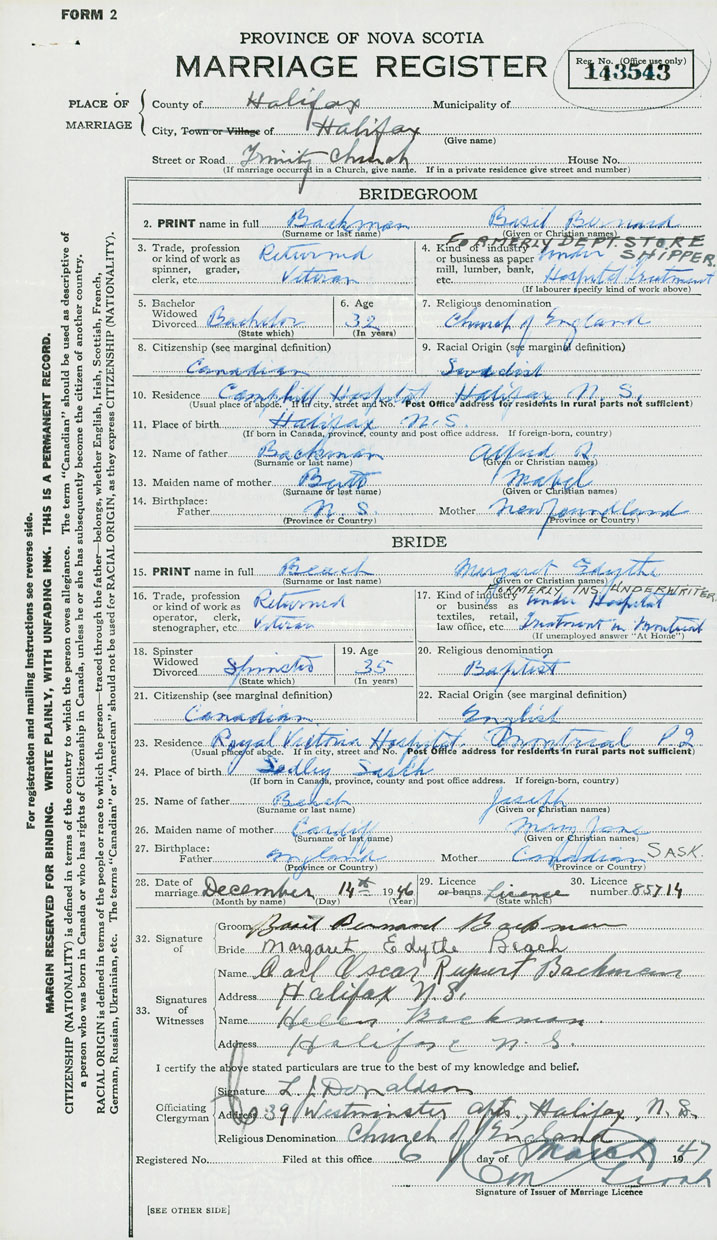 FORM 2
PROVINCE OF NOVA SCOTIA
MARRIAGE REGISTER
Reg. No. (Office use only)
143543
PLACE OF MARRIAGE
County of Halifax Municipality of
City, Town or Village of Halifax
(Give name)
Street or Road Trinity Church House No.
(If marriage occurred in a Church, give name. If in a private residence give street and number)
BRIDEGROOM
2. PRINT name in full Backman Basil Bernard
(Surname or last name) (Given or Christian names)
FORMERLY DEPT. STORE SHIPPER.
3. Trade, profession or kind of work as spinner, grader, clerk, etc. Returned Veteran
4. Kind of industry or business as paper mill, lumber, bank, etc. under Hospital treatment
(If labourer specify kind of work above)
5. Bachelor Widowed Divorced Bachelor
(State which)
6. Age 32
(In years)
7. Religious denomination
Church of England
8. Citizenship (see marginal definition)
Canadian
9. Racial Origin (see marginal definition)
Swedish
10. Residence Camphill Hospital Halifax N.S.
(Usual place of abode. If in city, street and No. Post Office address for residents in rural parts not sufficient)
11. Place of birth Halifax N.S.
(If born in Canada, province, county and post office address. If foreign-born, country)
12. Name of father Backman Alfred
(Surname or last name) (Given or Christian names)
13. Maiden name of mother Mabel
(Surname or last name) (Given or Christian names)
14. Birthplace:
Father N.S. Mother Newfoundland
(Province or Country) (Province or Country)
BRIDE
15. PRINT name in full Beach Margaret Edythe
(Surname or last name) (Given or Christian names)
FORMERLY INS. UNDERWRITER
16. Trade, profession or kind of work as operator, clerk, stenographer, etc. Returned Veteran
17. Kind of industry or business as textiles, retail, law office, etc. under Hospital treatment in Montreal
(If unemployed answer "At Home")
18. Spinster Widowed Divorced Spinster
(State which)
19. Age 35
(In years)
20. Religious denomination
Baptist
21. Citizenship (see marginal definition)
Canadian
22. Racial Origin (see marginal definition)
English
23. Residence Royal Victoria Hospital. Montreal P.Q
(Usual place of abode. If in city, street and No. Post Office address for residents in rural parts not sufficient)
24. Place of birth Sedley Sask
(If born in Canada, province, county and post office address. If foreign-born, country)
25. Name of father Beach Joseph
(Surname or last name) (Given or Christian names)
26. Maiden name of mother Cardiff Mary Jane
(Surname or last name) (Given or Christian names)
27. Birthplace:
Father England Mother Canadian SASK.
(Province or Country) (Province or Country)
28. Date of marriage December 14th 1946
(Month by name) (Day) (Year)
29. Licence or banns License
(State which)
30. Licence number 85714
32. Signature of
Groom Basil Bernard Backman
Bride Margaret Edythe Beach
33. Signatures of Witnesses
Name Carl Oscar Rupurt Backman
Address Halifax N.S.
Name Helen Backman.
Address Halifax N.S.
I certify the above stated particulars are true to the best of my knowledge and belief.
Officiating Clergyman
Signature L. J. Donaldson
Address 39 Westminster apts., Halifax, N.S.
Religious Denomination Church of England
Registered No. Filed at this office 6 day of March 1947
Signature of Issuer of Marriage Licence
[SEE OTHER SIDE]
For registration and mailing instructions see reverse side.
MARGIN RESERVED FOR BINDING. WRITE PLAINLY, WITH UNFADING INK. THIS IS A PERMANENT RECORD.
CITIZENSHIP (NATIONALITY) is defined in terms of the country to which the person owes allegiance. The term "Canadian" should be used as descriptive of
a person who was born in Canada or who has rights of Citizenship in Canada, unless he or she has subsequently become the citizen of another country.
RACIAL ORIGIN is defined in terms of the people or race to which the person—traced through the father—belongs, whether English, Irish, Scottish, French,
German, Russian, Ukrainian, etc. The terms "Canadian" or "American" should not be used for RACIAL ORIGIN, as they express CITIZENSHIP (NATIONALITY).